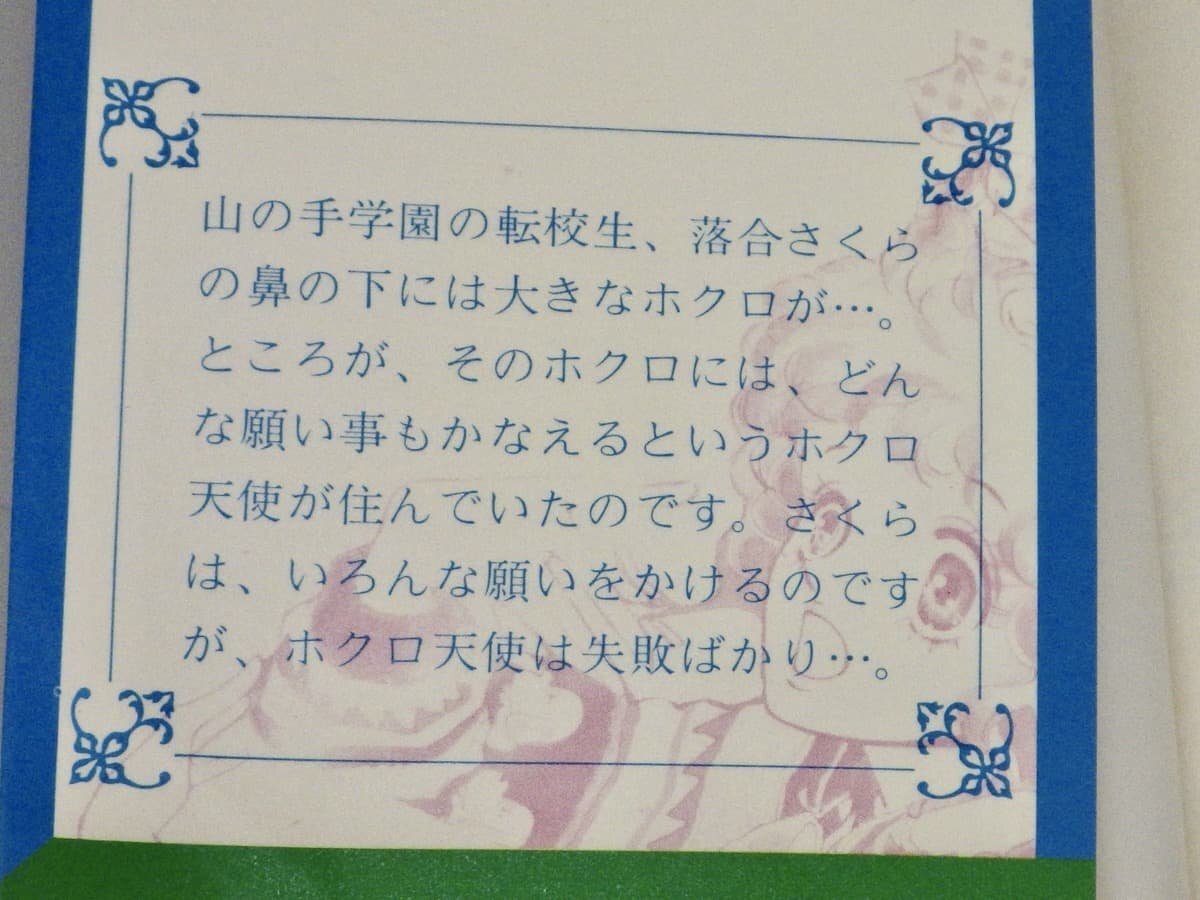 山の手学園の転校生、落合さくら
の鼻の下には大きなホクロが…。
ところが、そのホクロには、どん
な願い事もかなえるというホクロ
天使が住んでいたのです。さくら
は、いろんな願いをかけるのです
が、ホクロ天使は失敗ばかり…。